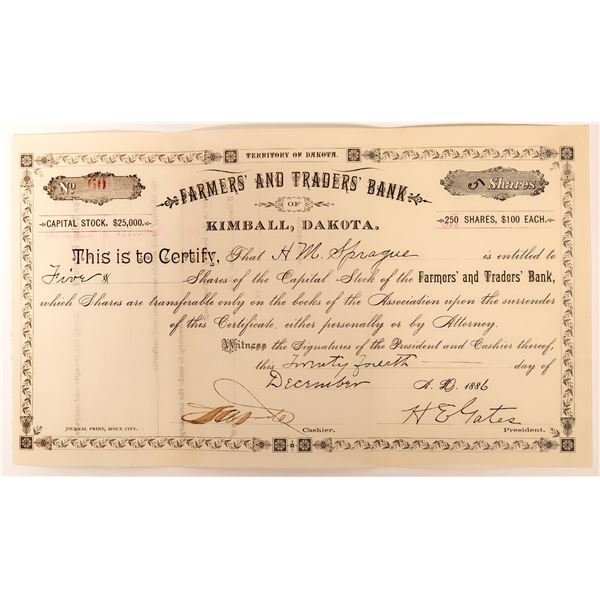 TERRITORY OF DAKOTA.
No. 60
5 Shares
FARMERS' AND TRADERS' BANK
OF
CAPITAL STOCK, $25,000.
KIMBALL, DAKOTA.
250 SHARES, $100 EACH.
This is to Certify, That H M Sprague is entitled to
Five Shares of the Capital Stock of the Farmers' and Traders' Bank,
which Shares are transferable only on the books of the Association upon the surrender
of this Certificate, either personally or by Attorney.
Witness the Signatures of the President and Cashier thereof,
this Twenty fourth day of
December A. D. 1886
H E Gates
JOURNAL PRINT, SIOUX CITY.
Cashier.
President.